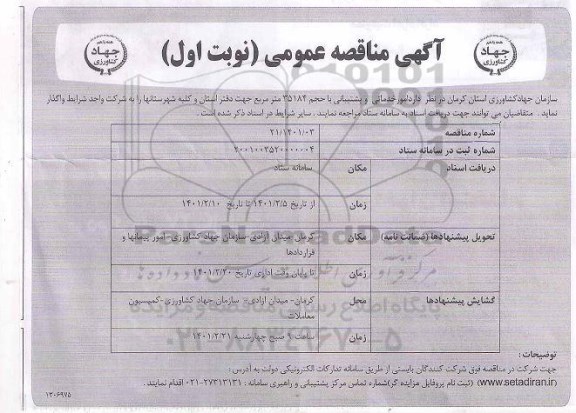 آگهی مناقصه عمومی (نوبت اول)
جهاد
کشاورزی
جهاد
کشاورزی
سازمان جهادکشاورزی استان کرمان در نظر دارد امور خدماتی و پشتیبانی با حجم ۳۵۱۸۴ متر مربع جهت دفتر استان و کلیه شهرستانها را به شرکت واجد شرایط واگذار
نماید . متقاضیان می توانند جهت دریافت اسناد به سامانه ستاد مراجعه نمایند . سایر شرایط در اسناد ذکر شده است .
شماره مناقصه ۲۱/۱۴۰۱/۰۳
شماره ثبت در سامانه ستاد ۲۰۰۱۰۰۳۵۲۰۰۰۰۰۰۴
دریافت اسناد مکان سامانه ستاد
زمان از تاریخ ۱۴۰۱/۲/۵ تا تاریخ ۱۴۰۱/۲/۱۰
تحویل پیشنهادها (ضمانت نامه) مکان کرمان- میدان آزادی- سازمان جهاد کشاورزی- امور پیمانها و
قراردادها
زمان تا پایان وقت اداری تاریخ ۱۴۰۱/۲/۲۰
گشایش پیشنهادها محل کرمان- میدان آزادی- سازمان جهاد کشاورزی-کمیسیون
معاملات
زمان ساعت ۹ صبح چهارشنبه ۱۴۰۱/۲/۲۱
پایگاه اطلاع رسانی مناقصه و مزایده
۰۲۱-۸۸۳۴۹۶۷۰-۵
توضیحات :
جهت شرکت در مناقصه فوق شرکت کنندگان بایستی از طریق سامانه تدارکات الکترونیکی دولت به آدرس :
(www.setadiran.ir) (ثبت نام پروفایل مزایده گر)شماره تماس مرکز پشتیبانی و راهبری سامانه : ۲۷۳۱۳۱۳۱-۰۲۱ اقدام نمایند .
۱۳۰۶۹۷۵